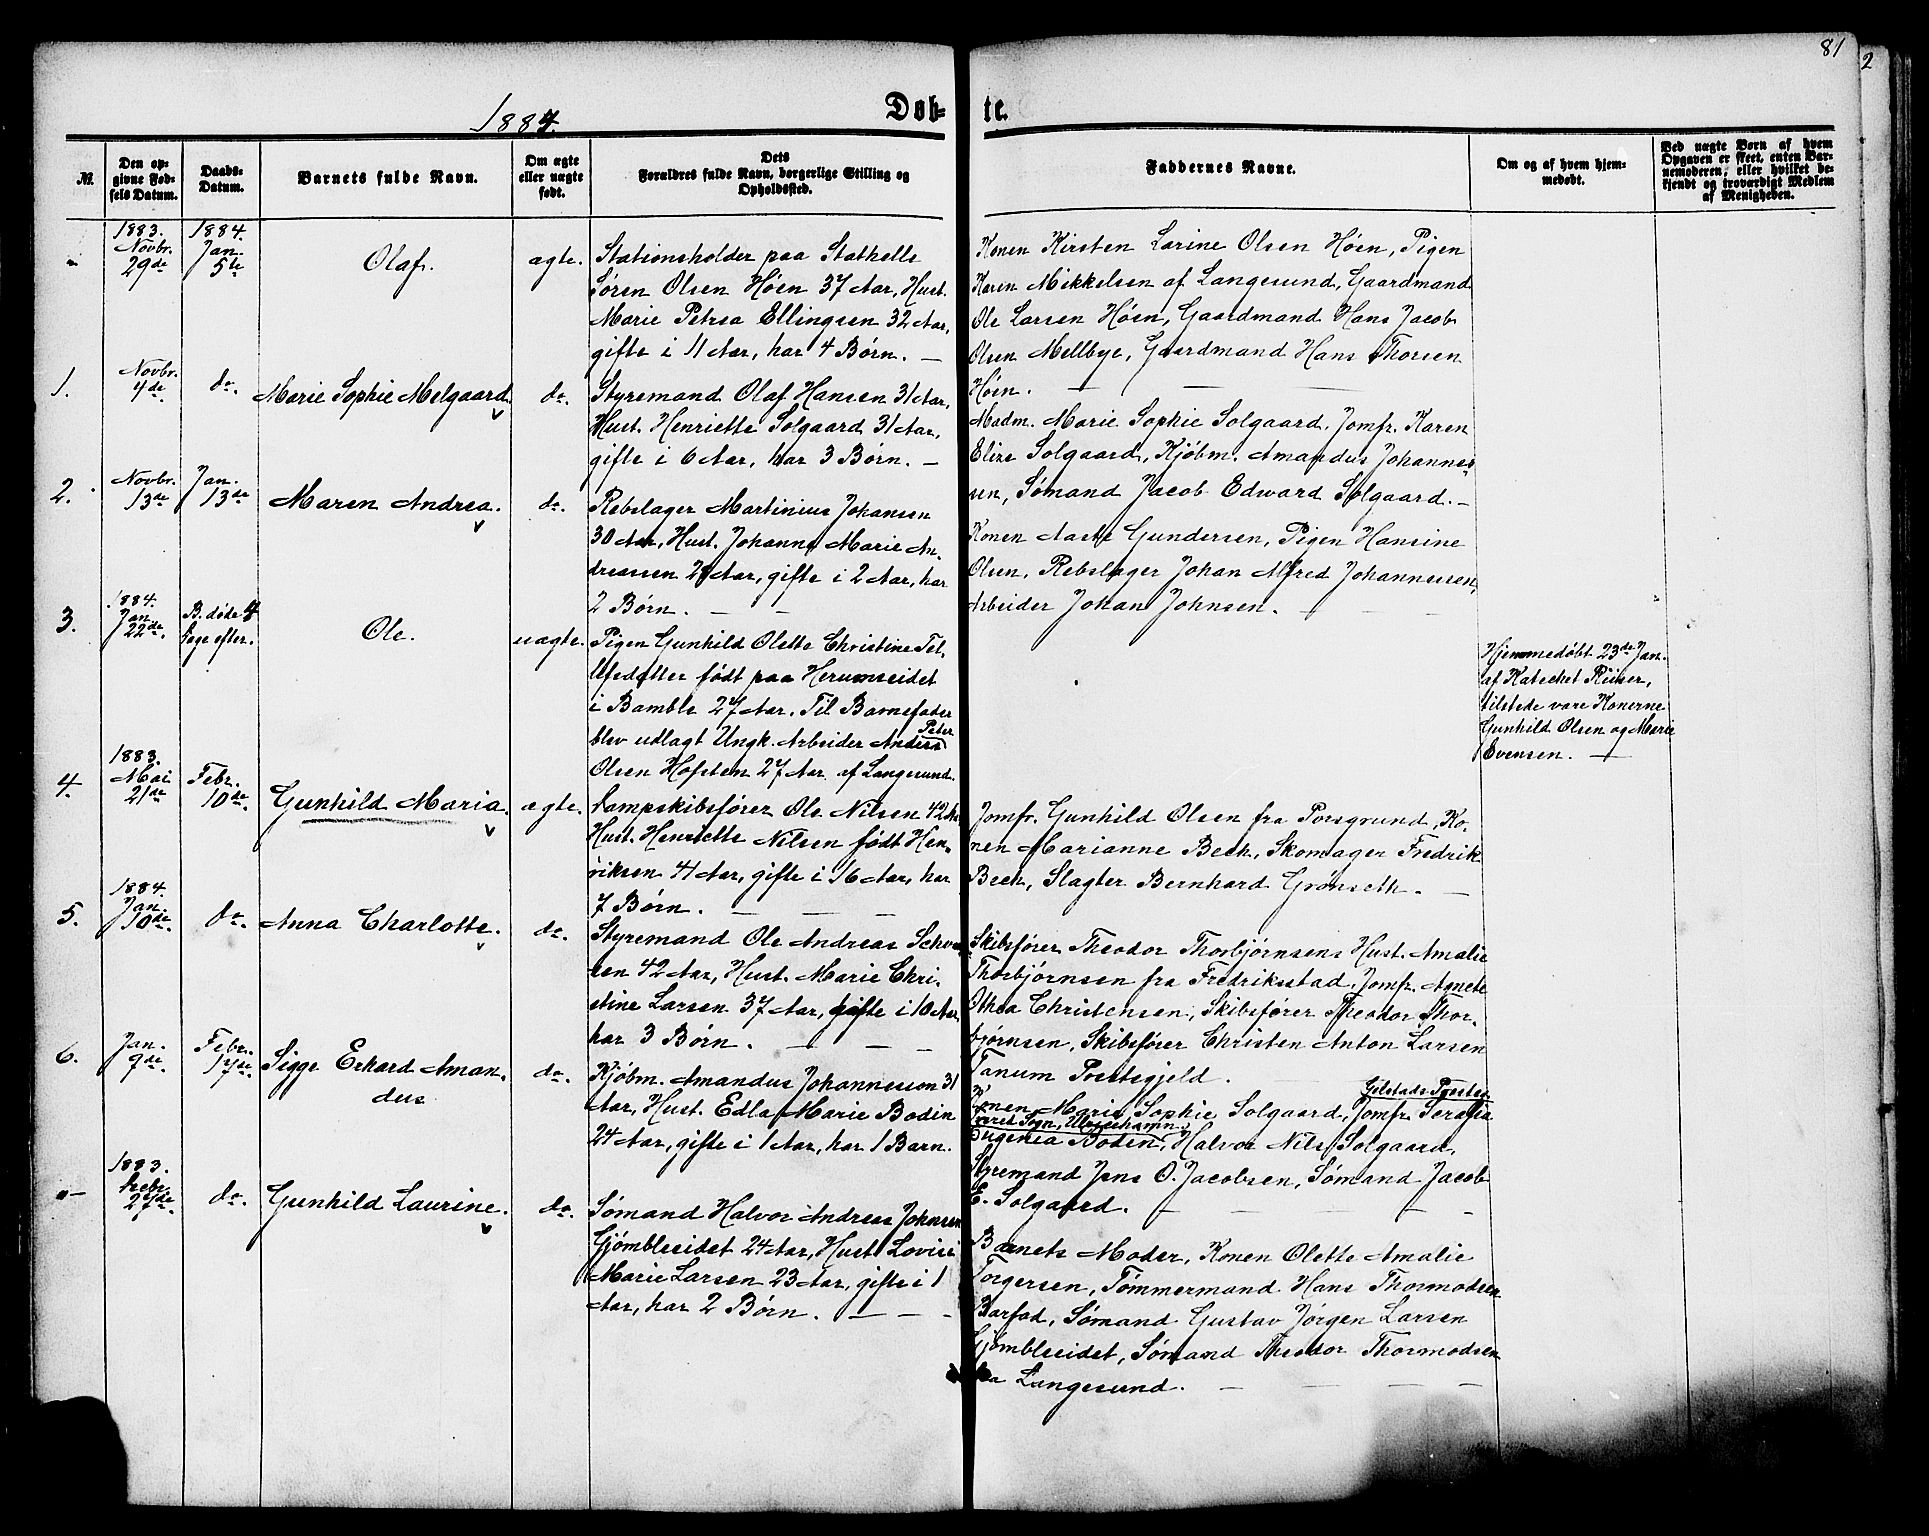 81
2
1884.
Døb-
te.
№.
Den op-
givne Fød-
sels Datum.
Daabs-
Datum.
Barnets fulde Navn.
Om ægte
eller uægte
født.
Dets
Forældres fulde Navn, borgerlige Stilling og
Opholdssted.
Faddernes Navne.
Om og af hvem hjem-
medøbt.
Ved uægte Børn af hvem
Opgaven er skeet, enten Bar-
nemoderen, eller hvilket be-
kjendt og troværdigt Medlem
af Menigheden.
1883.
Novbr.
29de
1884.
Jan.
5te
Olaf.
ægte.
Stationsholder paa Stathelle
Søren Olsen Høen 37 Aar, Hust.
Marie Petrea Ellingsen 32 Aar,
gifte i 11 Aar, har 4 Børn. —
Konen Kirsten Larine Olsen Høen, Pigen
Karen Mikkelsen af Langesund, Gaardmand
Ole Larsen Høen, Gaardmand Hans Jacob
Olsen Mellbye, Gaardmand Hans Thorsen
Høen. — —
1.
Novbr.
4de.
do.
Marie Sophie Melgaard.
do.
Styremand Olaf Hansen 31 Aar,
Hust. Henriette Solgaard 31 Aar,
gifte i 6 Aar, har 3 Børn. —
Madm. Marie Sophie Solgaard, Jomfr. Karen
Elise Solgaard, Kjøbm. Amandus Johannes-
sen, Sømand Jacob Edward Solgaard. —
2.
Novbr.
13de
Jan.
13de
Maren Andrea.
do.
Rebslager Martinius Johansen
30 Aar, Hust. Johanne Marie An-
dreassen 28 Aar, gifte i 2 Aar, har
2 Børn. — —
Konen Aaste Gundersen, Pigen Hansine
Olsen, Rebslager Johan Alfred Johannessen,
Arbeider Johan Johnsen. — —
3.
1884.
Jan.
22de.
B. døde 4
Dage efter.
Ole.
uægte.
Pigen Gunhild Olette Christine Tel-
lefsdatter født paa Herumseidet
i Bamble 27 Aar. Til Barnefader
blev udlagt Ungk. Arbeider Anders
Peter
Olsen Hofsten 27 Aar af Langesund.
Hjemmedøbt 23de Jan.
af Kateket Riiser,
tilstede vare Konerne
Gunhild Olsen og Marie
Evensen. —
4.
1883.
Mai
21de
Febr.
10de.
Gunhild Maria.
ægte.
Dampskibsfører Ole Nilsen 42 Aar
Hust. Henriette Nilsen født Hen-
riksen 41 Aar, gifte i 16 Aar, har
7 Børn. — — —
Jomfr. Gunhild Olsen fra Porsgrund, Ko-
nen Marianne Bech, Skomager Fredrik
Bech, Slagter Bernhard Grønseth. —
5.
1884.
Jan.
10de.
do.
Anna Charlotte.
do.
Styremand Ole Andreas
42 Aar, Hust. Marie Chri-
stine Larsen 37 Aar, gifte i 10 Aar,
har 3 Børn. — — —
Skibsfører Theodor Thorbjørnsens Hust. Amalie
Thorbjørnsen fra Fredriksstad, Jomfr. Agnete
Othea Christensen, Skibsfører Theodor Thor-
bjørnsen, Skibsfører Christen Anton Larsen
Tanum Postsgjeld.
6.
Jan.
9de.
Febr.
17de
Sigge Erhard Aman-
dus
do.
Kjøbm. Amandus Johannesson 31
Aar, Hust. Edla Marie Bodin
24 Aar, gifte i 1 Aar, har 1 Barn.
Konen Marie Sophie Solgaard, Jomfr. Serafia
Eugenia Boden, Halvor Nils Solgaard,
Styremand Jens O. Jacobsen, Sømand Jacob
E. Solgaard. — — — —
"—
1883.
Febr.
27de
do.
Gunhild Laurine.
do.
Sømand Halvor Andreas Johnsen
Gjømbleseidet 24 Aar, Hust. Lovise
Marie Larsen 23 Aar, gifte i 1
Aar, har 2 Børn. — — —
Barnets Moder, Konen Olette Amalie
Torgersen, Tømmermand Hans Thormodsen
Barfod, Sømand Gustav Jørgen Larsen
Gjømbleseidet, Sømand Theodor Thormodsen
fra Langesund. — — — —